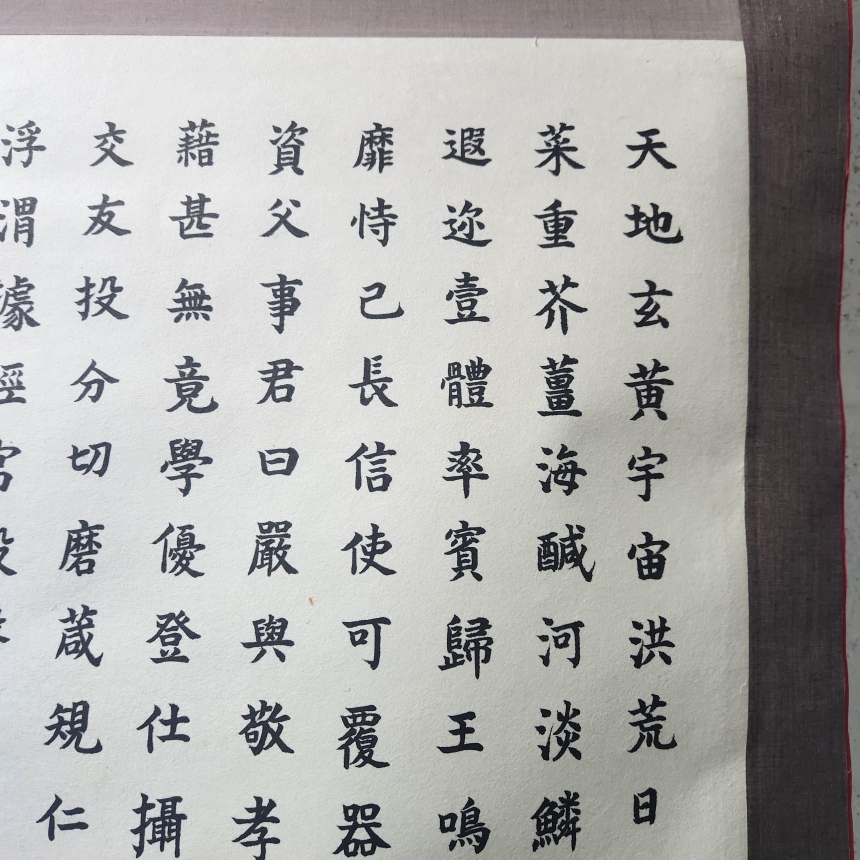 天地玄黃宇宙洪荒日
菜重芥薑海鹹河淡鱗
遐迩壹體率賓歸王鳴
靡恃己長信使可覆器
資父事君曰嚴與敬孝
藉甚無竟學優登仕攝
交友投分切磨葴規仁
浮渭據涇宮殿